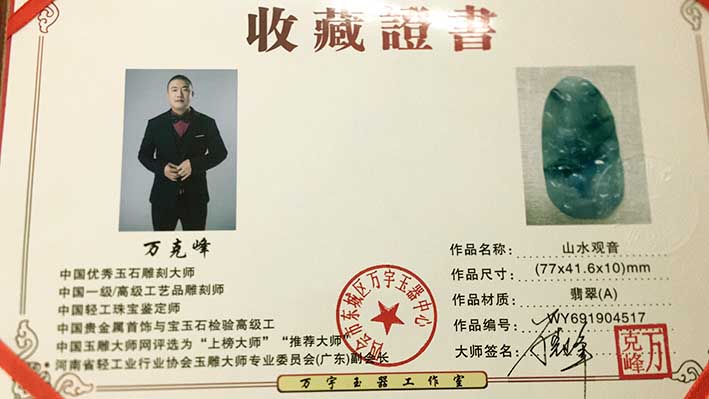 收藏證書
万克峰
中国优秀玉石雕刻大师
中国一级/高级工艺品雕刻师
中国轻工珠宝鉴定师
中国贵金属首饰与宝玉石检验高级工
中国玉雕大师网评选为“上榜大师”“推荐大师”
河南省轻工业行业协会玉雕大师专业委员会(广东)副会长
作品名称: 山水观音
作品尺寸: (77x41.6x10)mm
作品材质: 翡翠(A)
作品编号: WY691904517
大师签名: 万克峰
万克峰
四会市东城区万宇玉器中心
万宇玉器工作室